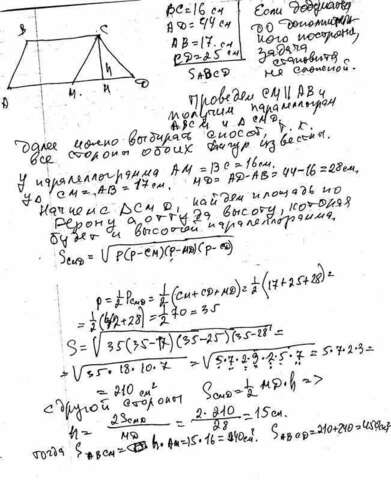 B C
A M H D
h
BC=16 см
AD=44 см
AB=17 см
CD=25 см
S ABCD
Если
до дополнитель
ного построения,
задача
становится
не сложной.
Проведем CM || AB и
получим параллелограм
ABCM и Δ CMD,
Далее можно выбирать способ, т. к.
все стороны обоих фигур известны.
У параллелограмма AM = BC = 16см.
У Δ CM = AB = 17см. MD = AD-AB = 44-16=28см,
Начнем с Δ CMD, найдем площадь по
Герону а оттуда высоту, которая
будет и высотой параллелограмма.
S CMD = √P(P-CM)(P-MD)(P-CD)
P = 1/2 P CMD = 1/2 (CM+CD+MD) = 1/2 (17+25+28) =
= 1/2 (42+28) = 1/2 70 = 35
S = √35(35-17)(35-25)(35-28) =
= √35·18·10·7 = √5·7·2·9·2·5·7 = 5·7·2·3 =
= 210 см²
с другой стороны S CMD = 1/2 MD·h =>
h = 2S CMD / MD = 2·210 / 28 = 15см.
тогда S ABCM = h·AM = 15·16 = 240см². S ABCD = 210+240 = 450см²